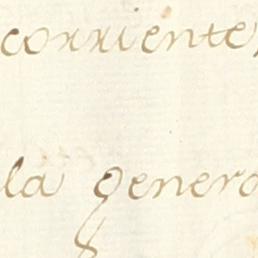 corriente,
la genero